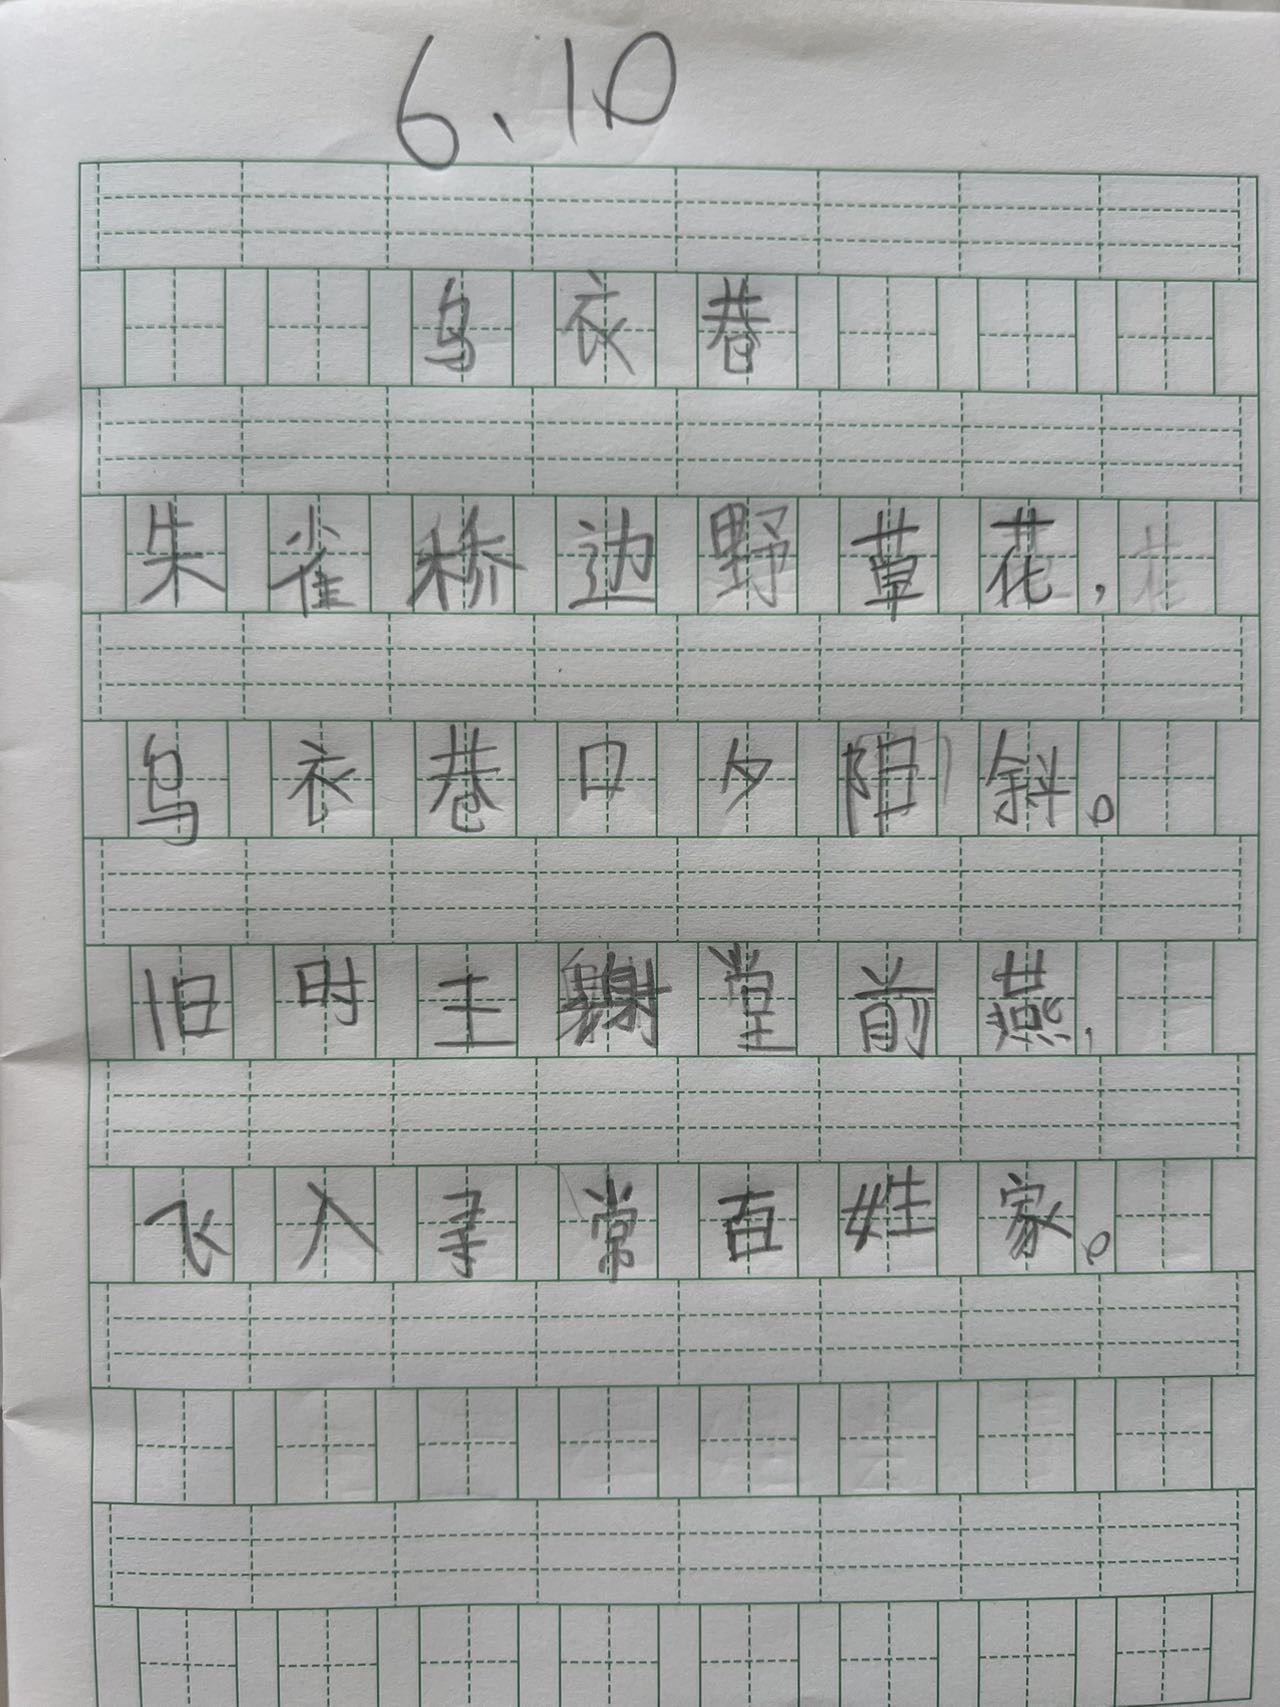 6.10
乌衣巷
朱雀桥边野草花，
乌衣巷口夕阳斜。
旧时王谢堂前燕，
飞入寻常百姓家。